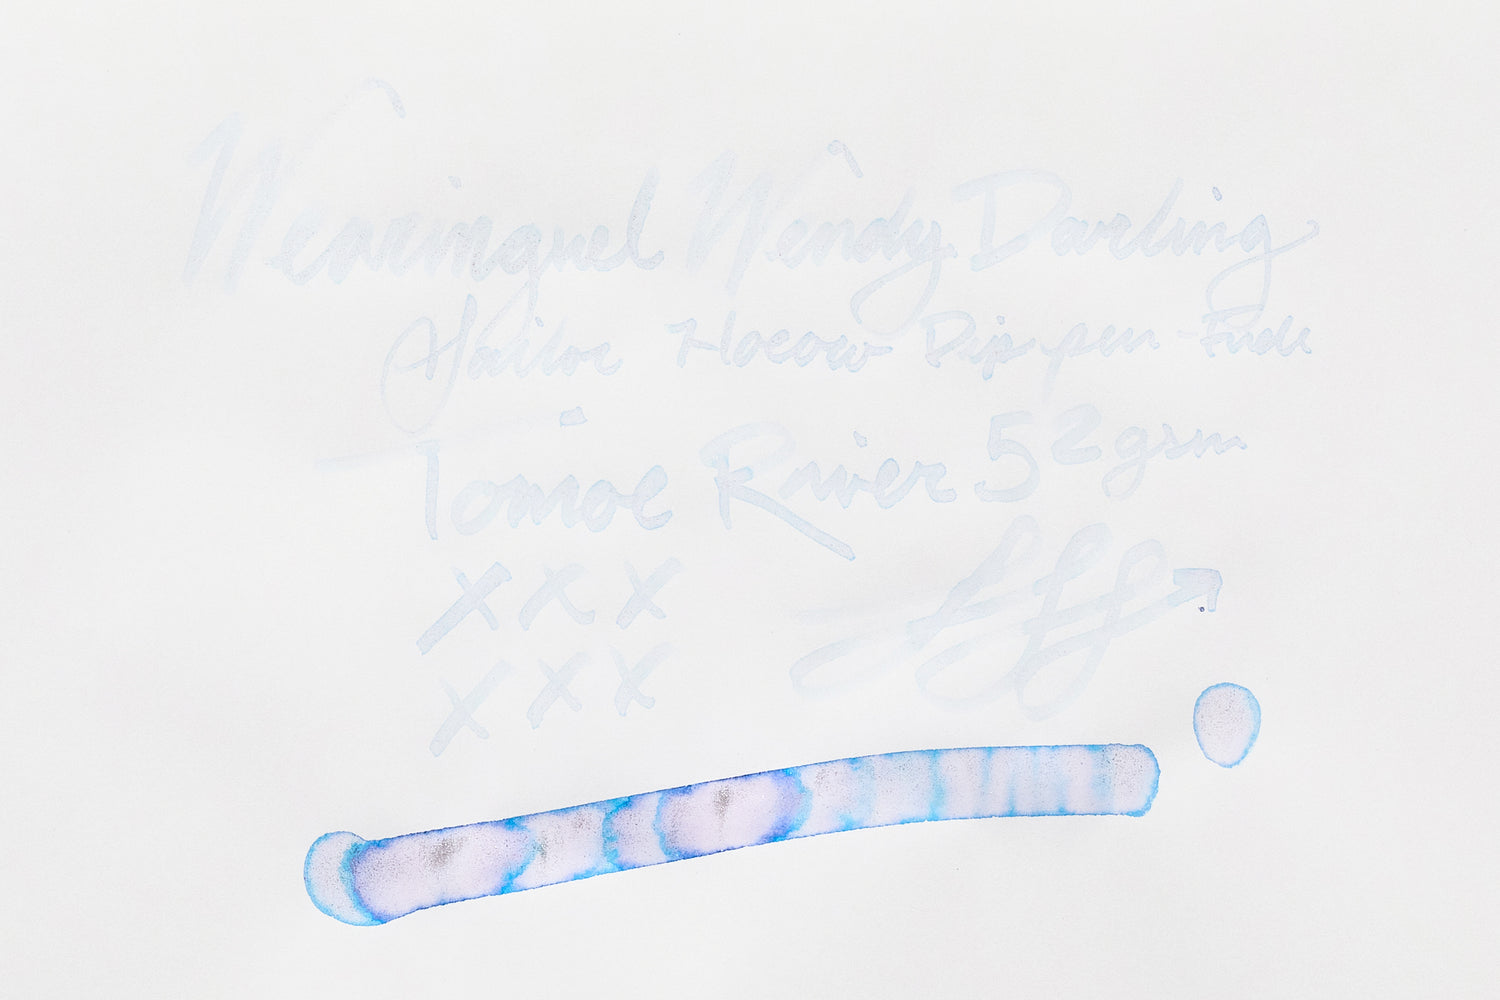 Wearinguel Wendy Darling
Sailor Hocoro Dip pen - Fude
Tomoe River 52gsm
x x x
x x x